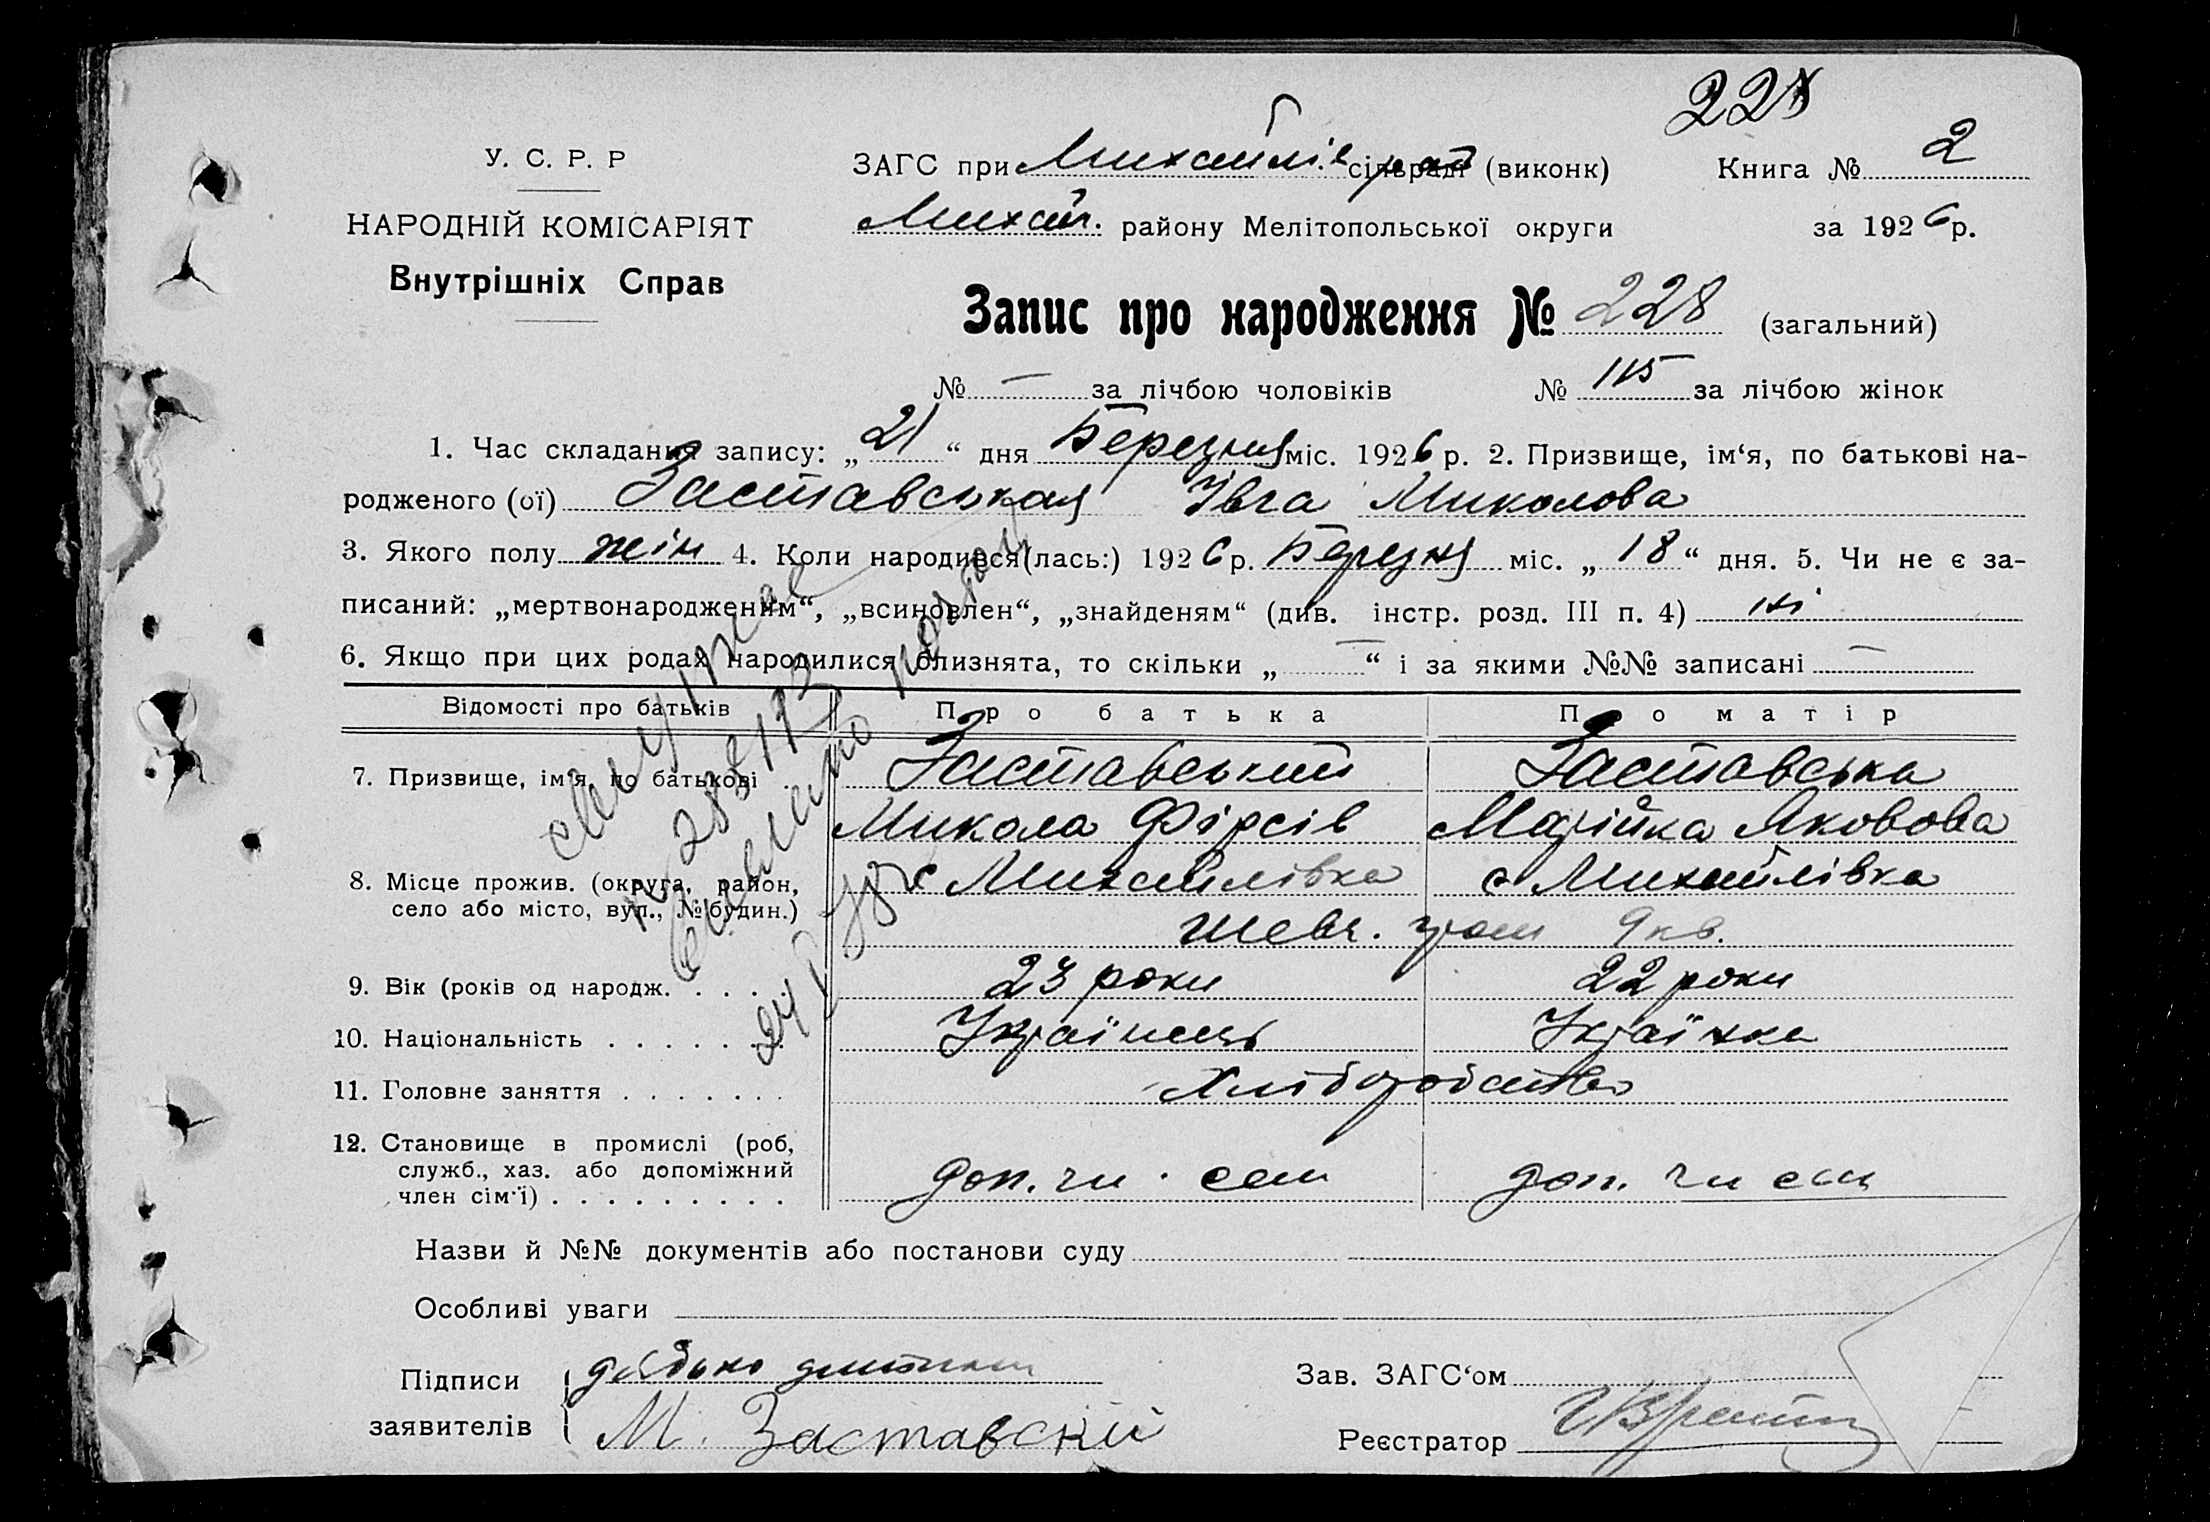 228
У. С. Р. Р
ЗАГС при Михайлів сільраді (виконк) Книга № 2
НАРОДНІЙ КОМІСАРІЯТ
Михайл. району Мелітопольської округи за 1926 р.
Внутрішніх Справ
Запис про народження № 228 (загальний)
№ — за лічбою чоловіків № 115 за лічбою жінок
1. Час складання запису: „21“ дня Березня міс. 1926 р. 2. Призвище, ім‘я, по батькові на-
родженого (ої) Заставськая Івга Миколова
3. Якого полу жін 4. Коли народився(лась:) 1926 р. Березня міс. „18“ дня. 5. Чи не є за-
писаний: „мертвонародженим“, „всиновлен“, „знайденям“ (див. інстр. розд. III п. 4) ні
6. Якщо при цих родах народилися близнята, то скільки „—“ і за якими №№ записані —
Відомості про батьків Про батька Про матір
7. Призвище, ім‘я, по батькові Заставський Заставська
Микола Фірсів Марійка Яковова
8. Місце прожив. (округа, район, с Михайлівка с Михайлівка
село або місто, вул., № будин.) Шевч. гром 9 кв.
9. Вік (років од народж. . . . 23 роки 22 роки
10. Національність . . . . . . . Українець Українка
11. Головне заняття . . . . . . . Хліборобство
12. Становище в промислі (роб,
служб., хаз. або допоміжний доп. чл. сем доп. чл сем
член сім‘ї) . . . . . . . . .
Назви й №№ документів або постанови суду
Особливі уваги
Підписи Зав. ЗАГС‘ом
заявителів М. Заставскій Реєстратор